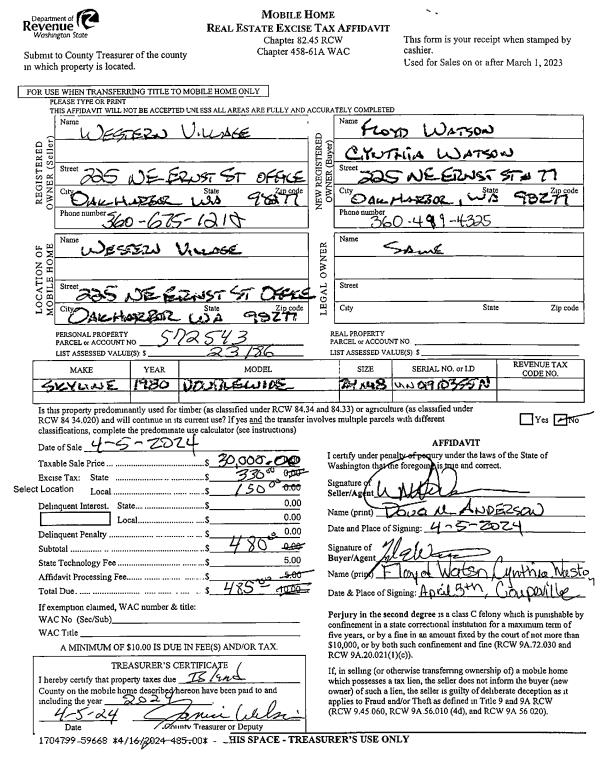 Department of
Revenue
Washington State
MOBILE HOME
REAL ESTATE EXCISE TAX AFFIDAVIT
Chapter 82.45 RCW
Chapter 458-61A WAC
Submit to County Treasurer of the county
in which property is located.
This form is your receipt when stamped by
cashier.
Used for Sales on or after March 1, 2023
FOR USE WHEN TRANSFERRING TITLE TO MOBILE HOME ONLY
PLEASE TYPE OR PRINT
THIS AFFIDAVIT WILL NOT BE ACCEPTED UNLESS ALL AREAS ARE FULLY AND ACCURATELY COMPLETED
REGISTERED OWNER (Seller)
Name
WESTERN VILLAGE
Street 225 NE ERNST ST OFFICE
City State Zip code
OAK HARBOR WA 98277
Phone number
360-675-1210
NEW REGISTERED OWNER (Buyer)
Name
FLOYD WATSON
CYNTHIA WATSON
Street 225 NE ERNST ST # 77
City State Zip code
OAK HARBOR, WA 98277
Phone number
360-499-4325
LOCATION OF MOBILE HOME
Name
WESTERN VILLAGE
Street 225 NE ERNST ST OFFICE
City State Zip code
OAK HARBOR WA 98277
LEGAL OWNER
Name
SAME
Street
City State Zip code
PERSONAL PROPERTY
PARCEL or ACCOUNT NO 572543
LIST ASSESSED VALUE(S) $ 23186
REAL PROPERTY
PARCEL or ACCOUNT NO
LIST ASSESSED VALUE(S) $
MAKE YEAR MODEL SIZE SERIAL NO. or I.D REVENUE TAX CODE NO.
SKYLINE 1980 DOUBLEWIDE
Is this property predominantly used for timber (as classified under RCW 84.34 and 84.33) or agriculture (as classified under
RCW 84 34.020) and will continue in its current use? If yes and the transfer involves multiple parcels with different
classifications, complete the predominate use calculator (see instructions)
Yes No
Date of Sale 4-5-2024
Taxable Sale Price $ 30,000.00
Excise Tax: State $ 330 00 0.00
Select Location Local $ 150 00 0.00
Delinquent Interest. State $ 0.00
Local $ 0.00
Delinquent Penalty $ 0.00
Subtotal $ 480 00 0.00
State Technology Fee $ 5.00
Affidavit Processing Fee $ 5.00
Total Due $ 485.00 10.00
If exemption claimed, WAC number & title:
WAC No (Sec/Sub)
WAC Title
A MINIMUM OF $10.00 IS DUE IN FEE(S) AND/OR TAX.
AFFIDAVIT
I certify under penalty of perjury under the laws of the State of
Washington that the foregoing is true and correct.
Signature of
Seller/Agent
Name (print) DOUG M. ANDERSON
Date and Place of Signing: 4-5-2024
Signature of
Buyer/Agent
Name (print) Floyd Watson Cynthia Watson
Date & Place of Signing: April 5th, Coupeville
Perjury in the second degree is a class C felony which is punishable by
confinement in a state correctional institution for a maximum term of
five years, or by a fine in an amount fixed by the court of not more than
$10,000, or by both such confinement and fine (RCW 9A.72.030 and
RCW 9A.20.021(1)(c)).
If, in selling (or otherwise transferring ownership of) a mobile home
which possesses a tax lien, the seller does not inform the buyer (new
owner) of such a lien, the seller is guilty of deliberate deception as it
applies to Fraud and/or Theft as defined in Title 9 and 9A RCW
(RCW 9.45 060, RCW 9A 56.010 (4d), and RCW 9A 56 020).
TREASURER'S CERTIFICATE
I hereby certify that property taxes due Island
County on the mobile home described hereon have been paid to and
including the year 2024
4-5-24
County Treasurer or Deputy
1704799-59668 *4/16/2024-485.00* - THIS SPACE - TREASURER'S USE ONLY